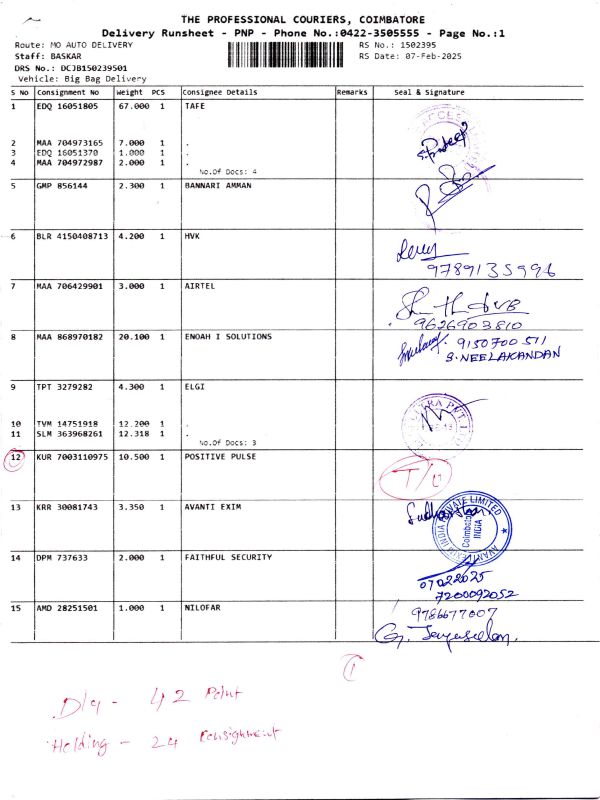 THE PROFESSIONAL COURIERS, COIMBATORE
Delivery Runsheet - PNP - Phone No.:0422-3505555 - Page No.:1
Route: MO AUTO DELIVERY RS No.: 1502395
Staff: BASKAR RS Date: 07-Feb-2025
DRS No.: DCJB150239501
Vehicle: Big Bag Delivery
S No Consignment No Weight PCS Consignee Details Remarks Seal & Signature
1 EDQ 16051805 67.000 1 TAFE
2 MAA 704973165 7.000 1 .
3 EDQ 16051370 1.000 1 .
4 MAA 704972987 2.000 1 .
No.Of Docs: 4
5 GMP 856144 2.300 1 BANNARI AMMAN
6 BLR 4150408713 4.200 1 HVK
9789135996
7 MAA 706429901 3.000 1 AIRTEL
9626903810
8 MAA 868970182 20.100 1 ENOAH I SOLUTIONS
9150700511
S.NEELAKANDAN
9 TPT 3279282 4.300 1 ELGI
10 TVM 14751918 12.200 1 .
11 SLM 363968261 12.318 1 .
No.Of Docs: 3
12 KUR 7003110975 10.500 1 POSITIVE PULSE
T/O
13 KRR 30081743 3.350 1 AVANTI EXIM
AVANTI EXIM INDIA PRIVATE LIMITED
Coimbatore
INDIA
14 DPM 737633 2.000 1 FAITHFUL SECURITY
07022025
7200092052
15 AMD 28251501 1.000 1 NILOFAR
9786677007
G. Jayaseelan.
1
D/q - 42 Point
Holding - 24 Consignment